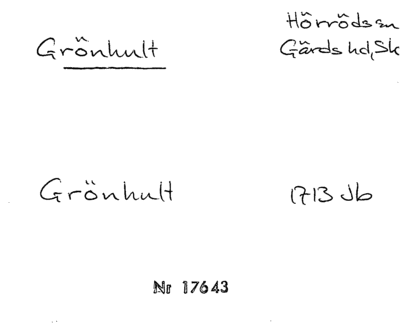 Hörröds sn
Grönhult Gärds hd, Sk
Grönhult 1713 Jb
Nr 17643